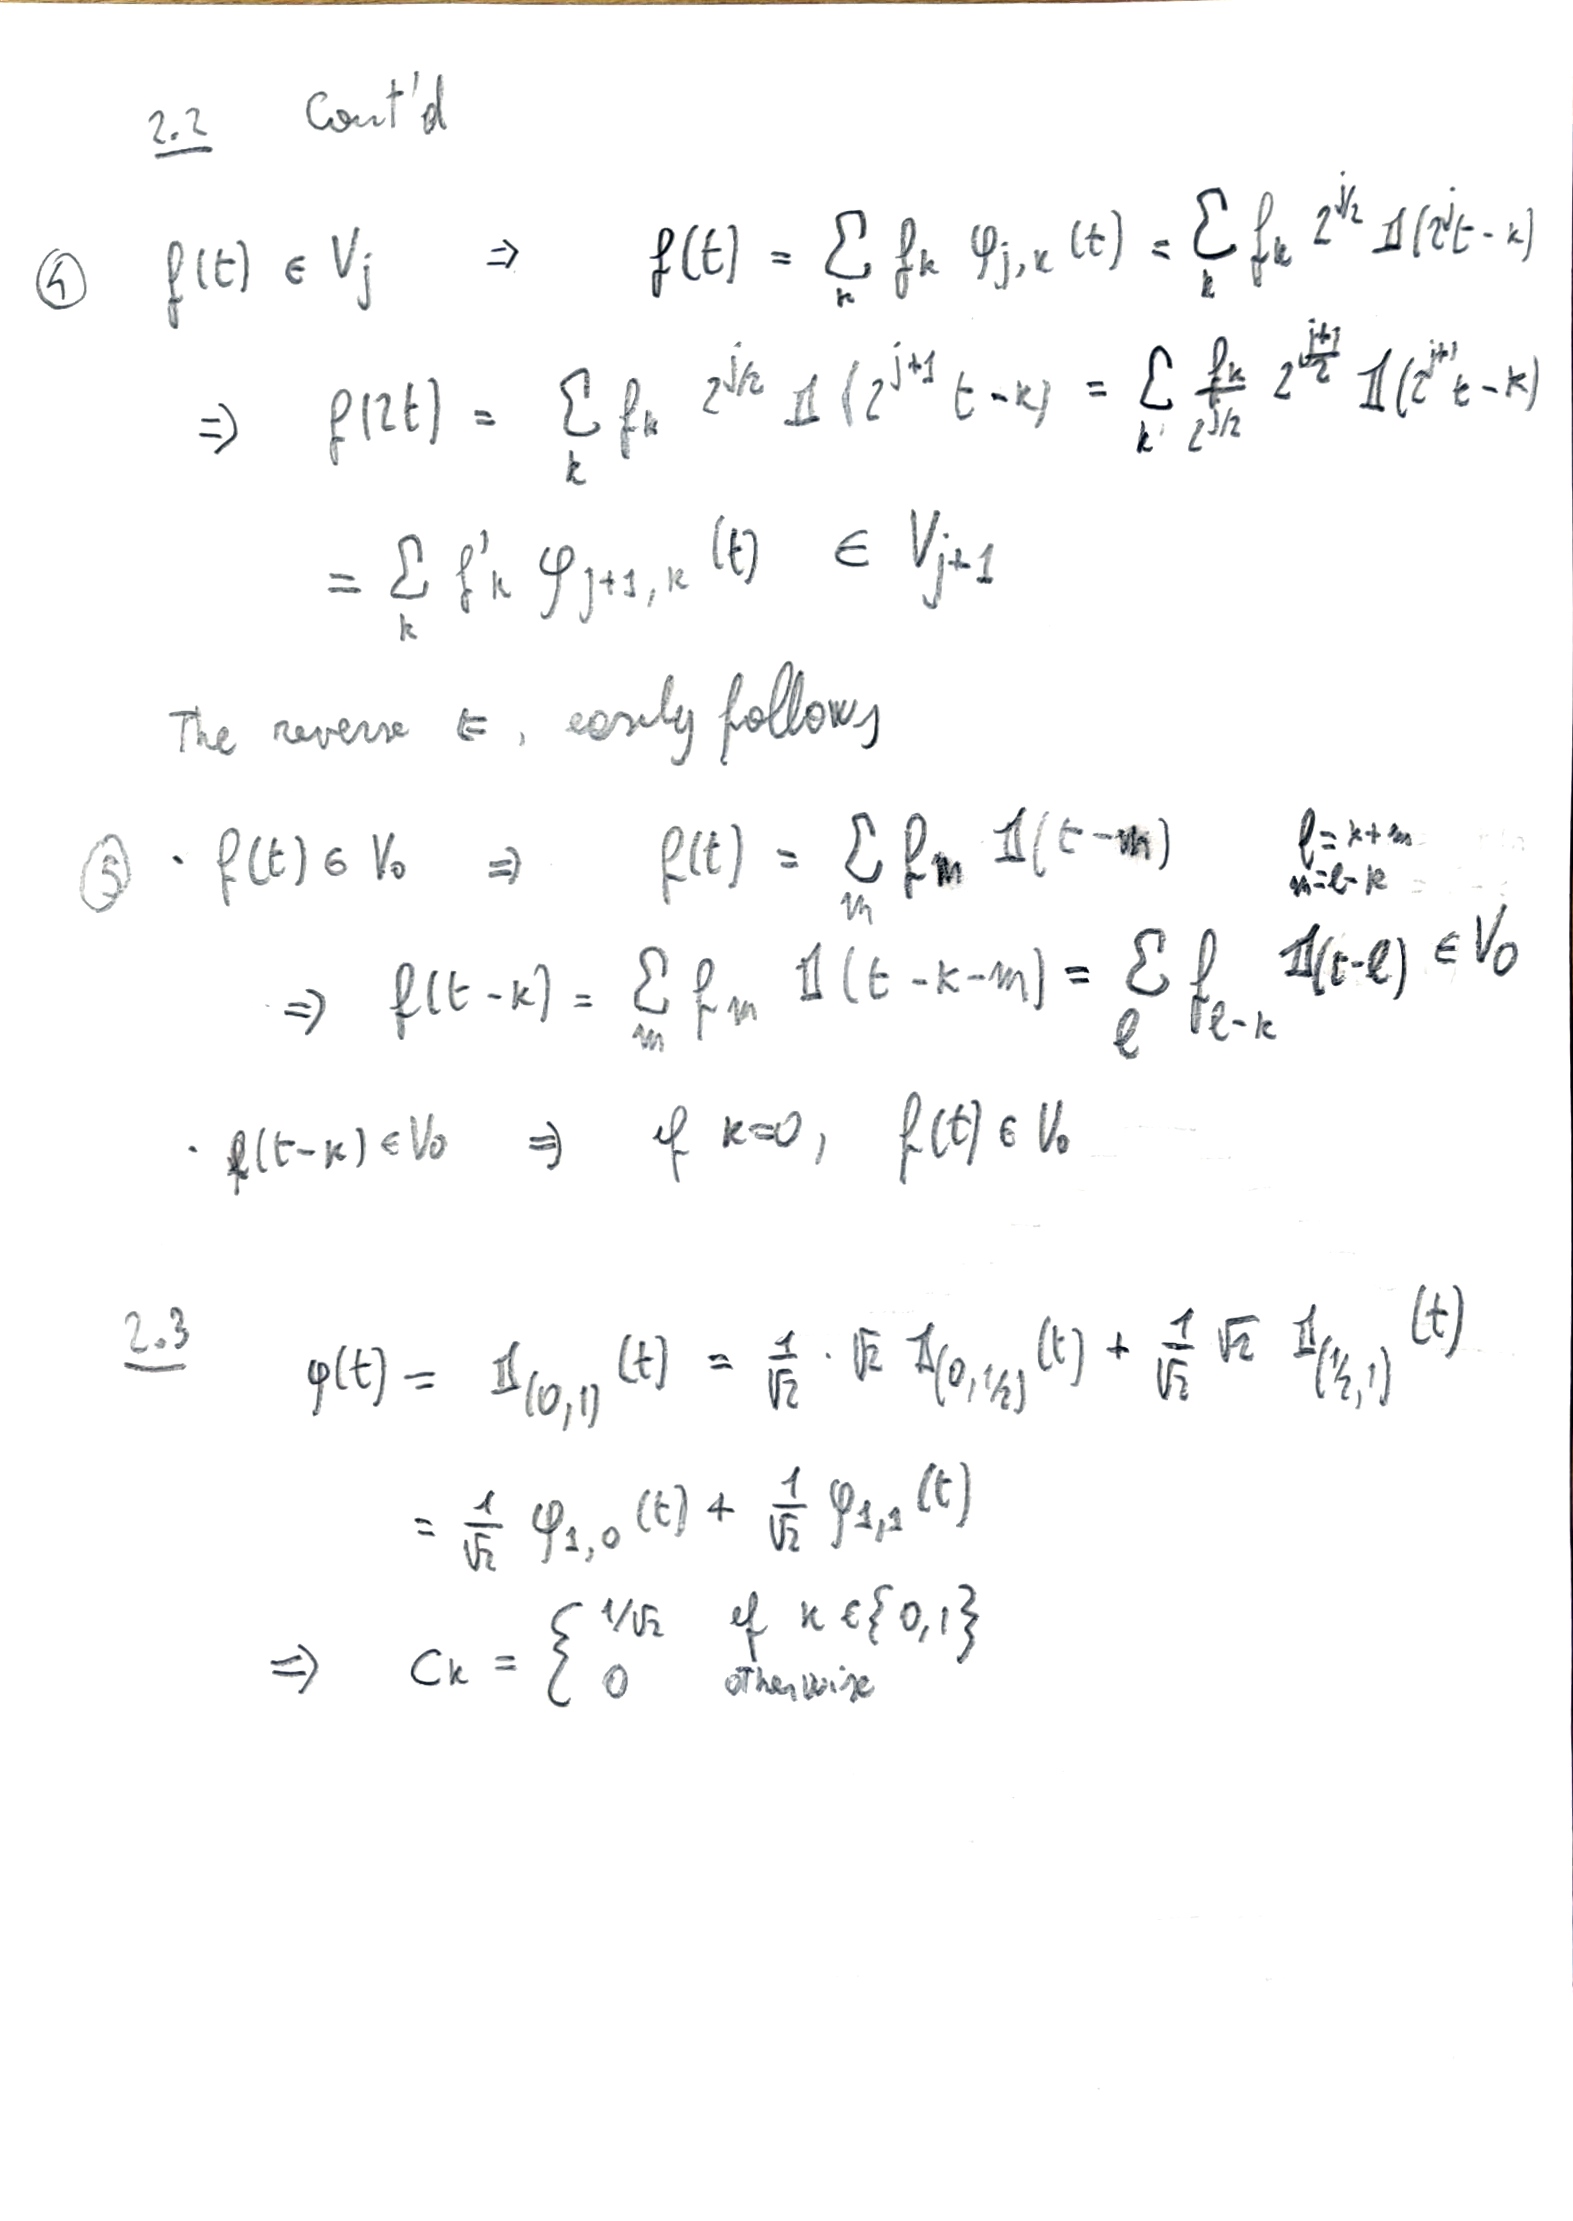 2.2 Cont'd
④ f(t) ∈ Vj ⇒ f(t) = Σ_k f_k φ_{j,k}(t) = Σ_k f_k 2^{j/2} 𝟙(2^j t - k)
⇒ f(2t) = Σ_k f_k 2^{j/2} 𝟙(2^{j+1} t - k) = Σ_k f_k/2^{j/2} 2^{(j+1)/2} 𝟙(2^{j+1} t - k)
= Σ_k f'_k φ_{j+1,k}(t) ∈ V_{j+1}
The reverse ⇐, easily follows
⑤ · f(t) ∈ V_0 ⇒ f(t) = Σ_m f_m 𝟙(t - m) l = k+m
m = l-k
⇒ f(t - k) = Σ_m f_m 𝟙(t - k - m) = Σ_l f_{l-k} 𝟙(t-l) ∈ V_0
· f(t-k) ∈ V_0 ⇒ if k=0, f(t) ∈ V_0
2.3 φ(t) = 𝟙_{(0,1)}(t) = 1/√2 · √2 𝟙_{(0,1/2)}(t) + 1/√2 √2 𝟙_{(1/2,1)}(t)
= 1/√2 φ_{1,0}(t) + 1/√2 φ_{1,1}(t)
⇒ C_k = { 1/√2 if k ∈ {0,1}
0 otherwise